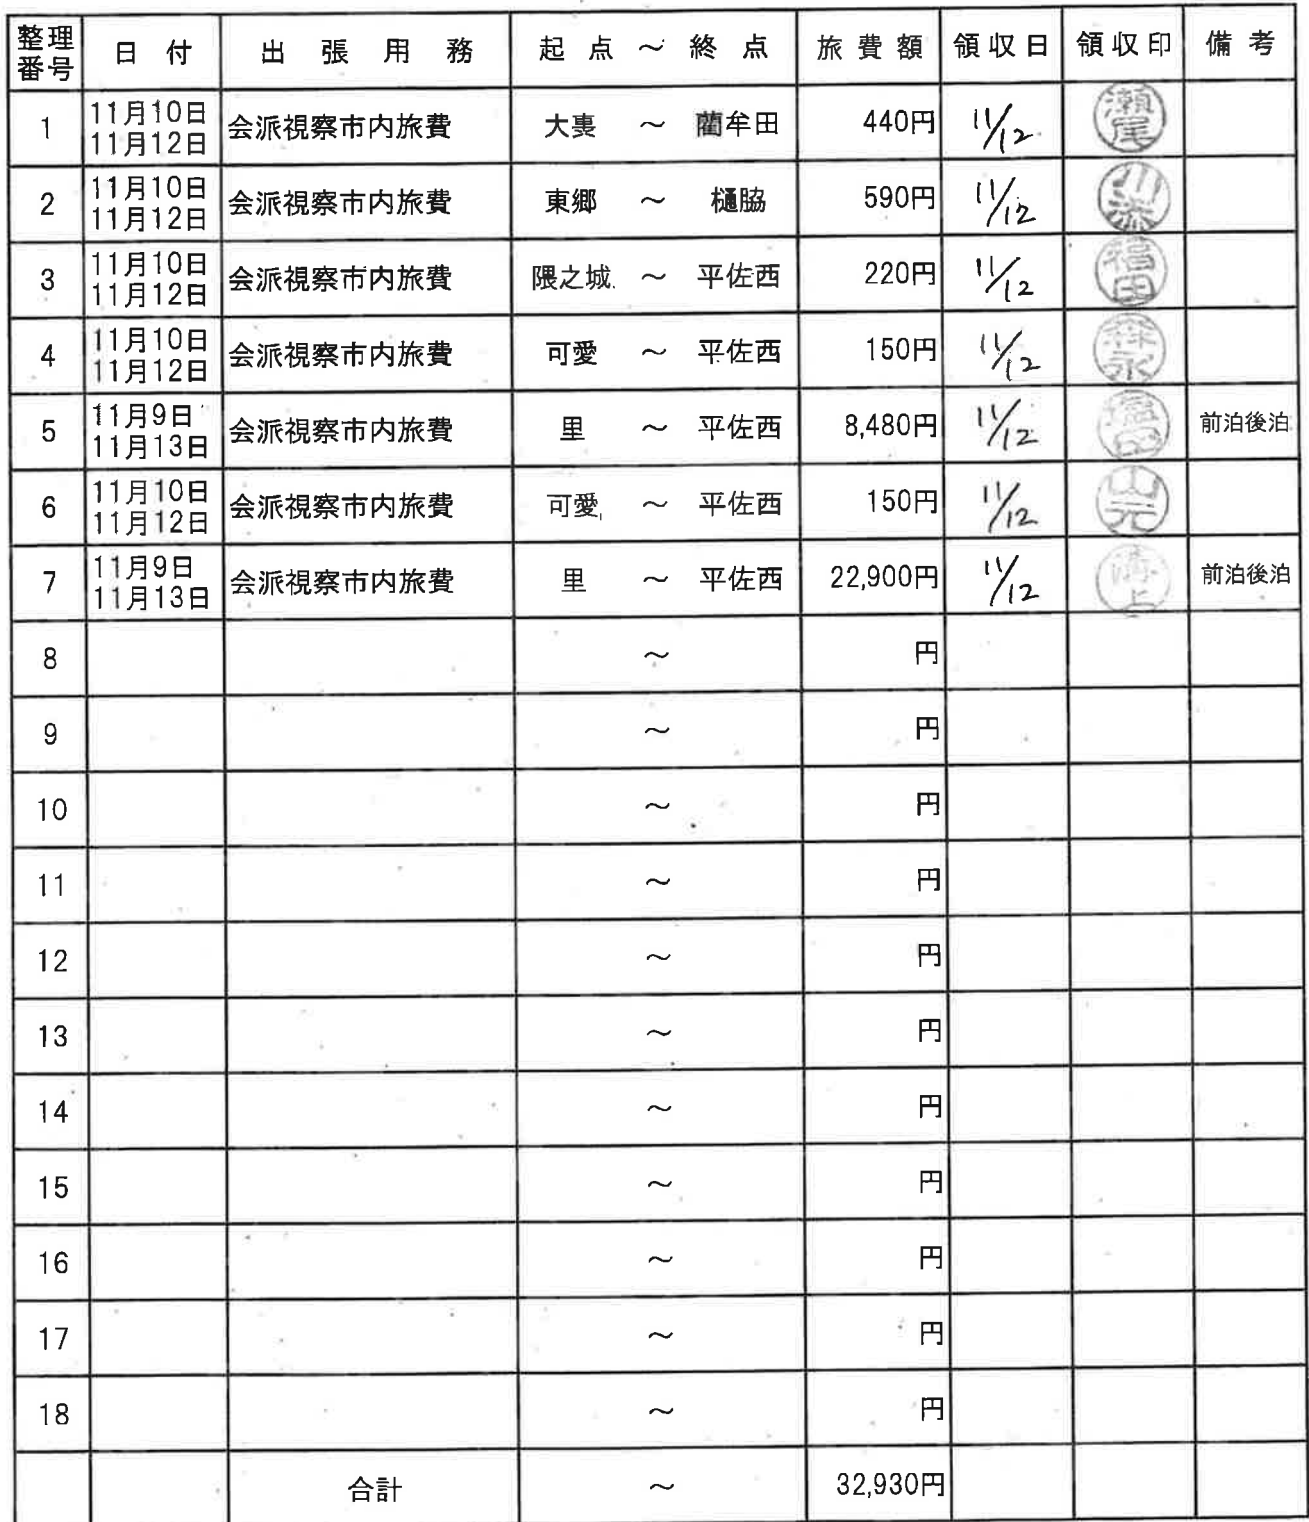 整理番号 日付 出張用務 起点～終点 旅費額 領収日 領収印 備考
1 11月10日 11月12日 会派視察市内旅費 大裏 ～ 藺牟田 440円 11/12 瀬尾
2 11月10日 11月12日 会派視察市内旅費 東郷 ～ 樋脇 590円 11/12 川添
3 11月10日 11月12日 会派視察市内旅費 隈之城 ～ 平佐西 220円 11/12 福田
4 11月10日 11月12日 会派視察市内旅費 可愛 ～ 平佐西 150円 11/12 森永
5 11月9日 11月13日 会派視察市内旅費 里 ～ 平佐西 8,480円 11/12 前泊後泊
6 11月10日 11月12日 会派視察市内旅費 可愛 ～ 平佐西 150円 11/12 山元
7 11月9日 11月13日 会派視察市内旅費 里 ～ 平佐西 22,900円 11/12 溝上 前泊後泊
8 ～ 円
9 ～ 円
10 ～ 円
11 ～ 円
12 ～ 円
13 ～ 円
14 ～ 円
15 ～ 円
16 ～ 円
17 ～ 円
18 ～ 円
合計 ～ 32,930円